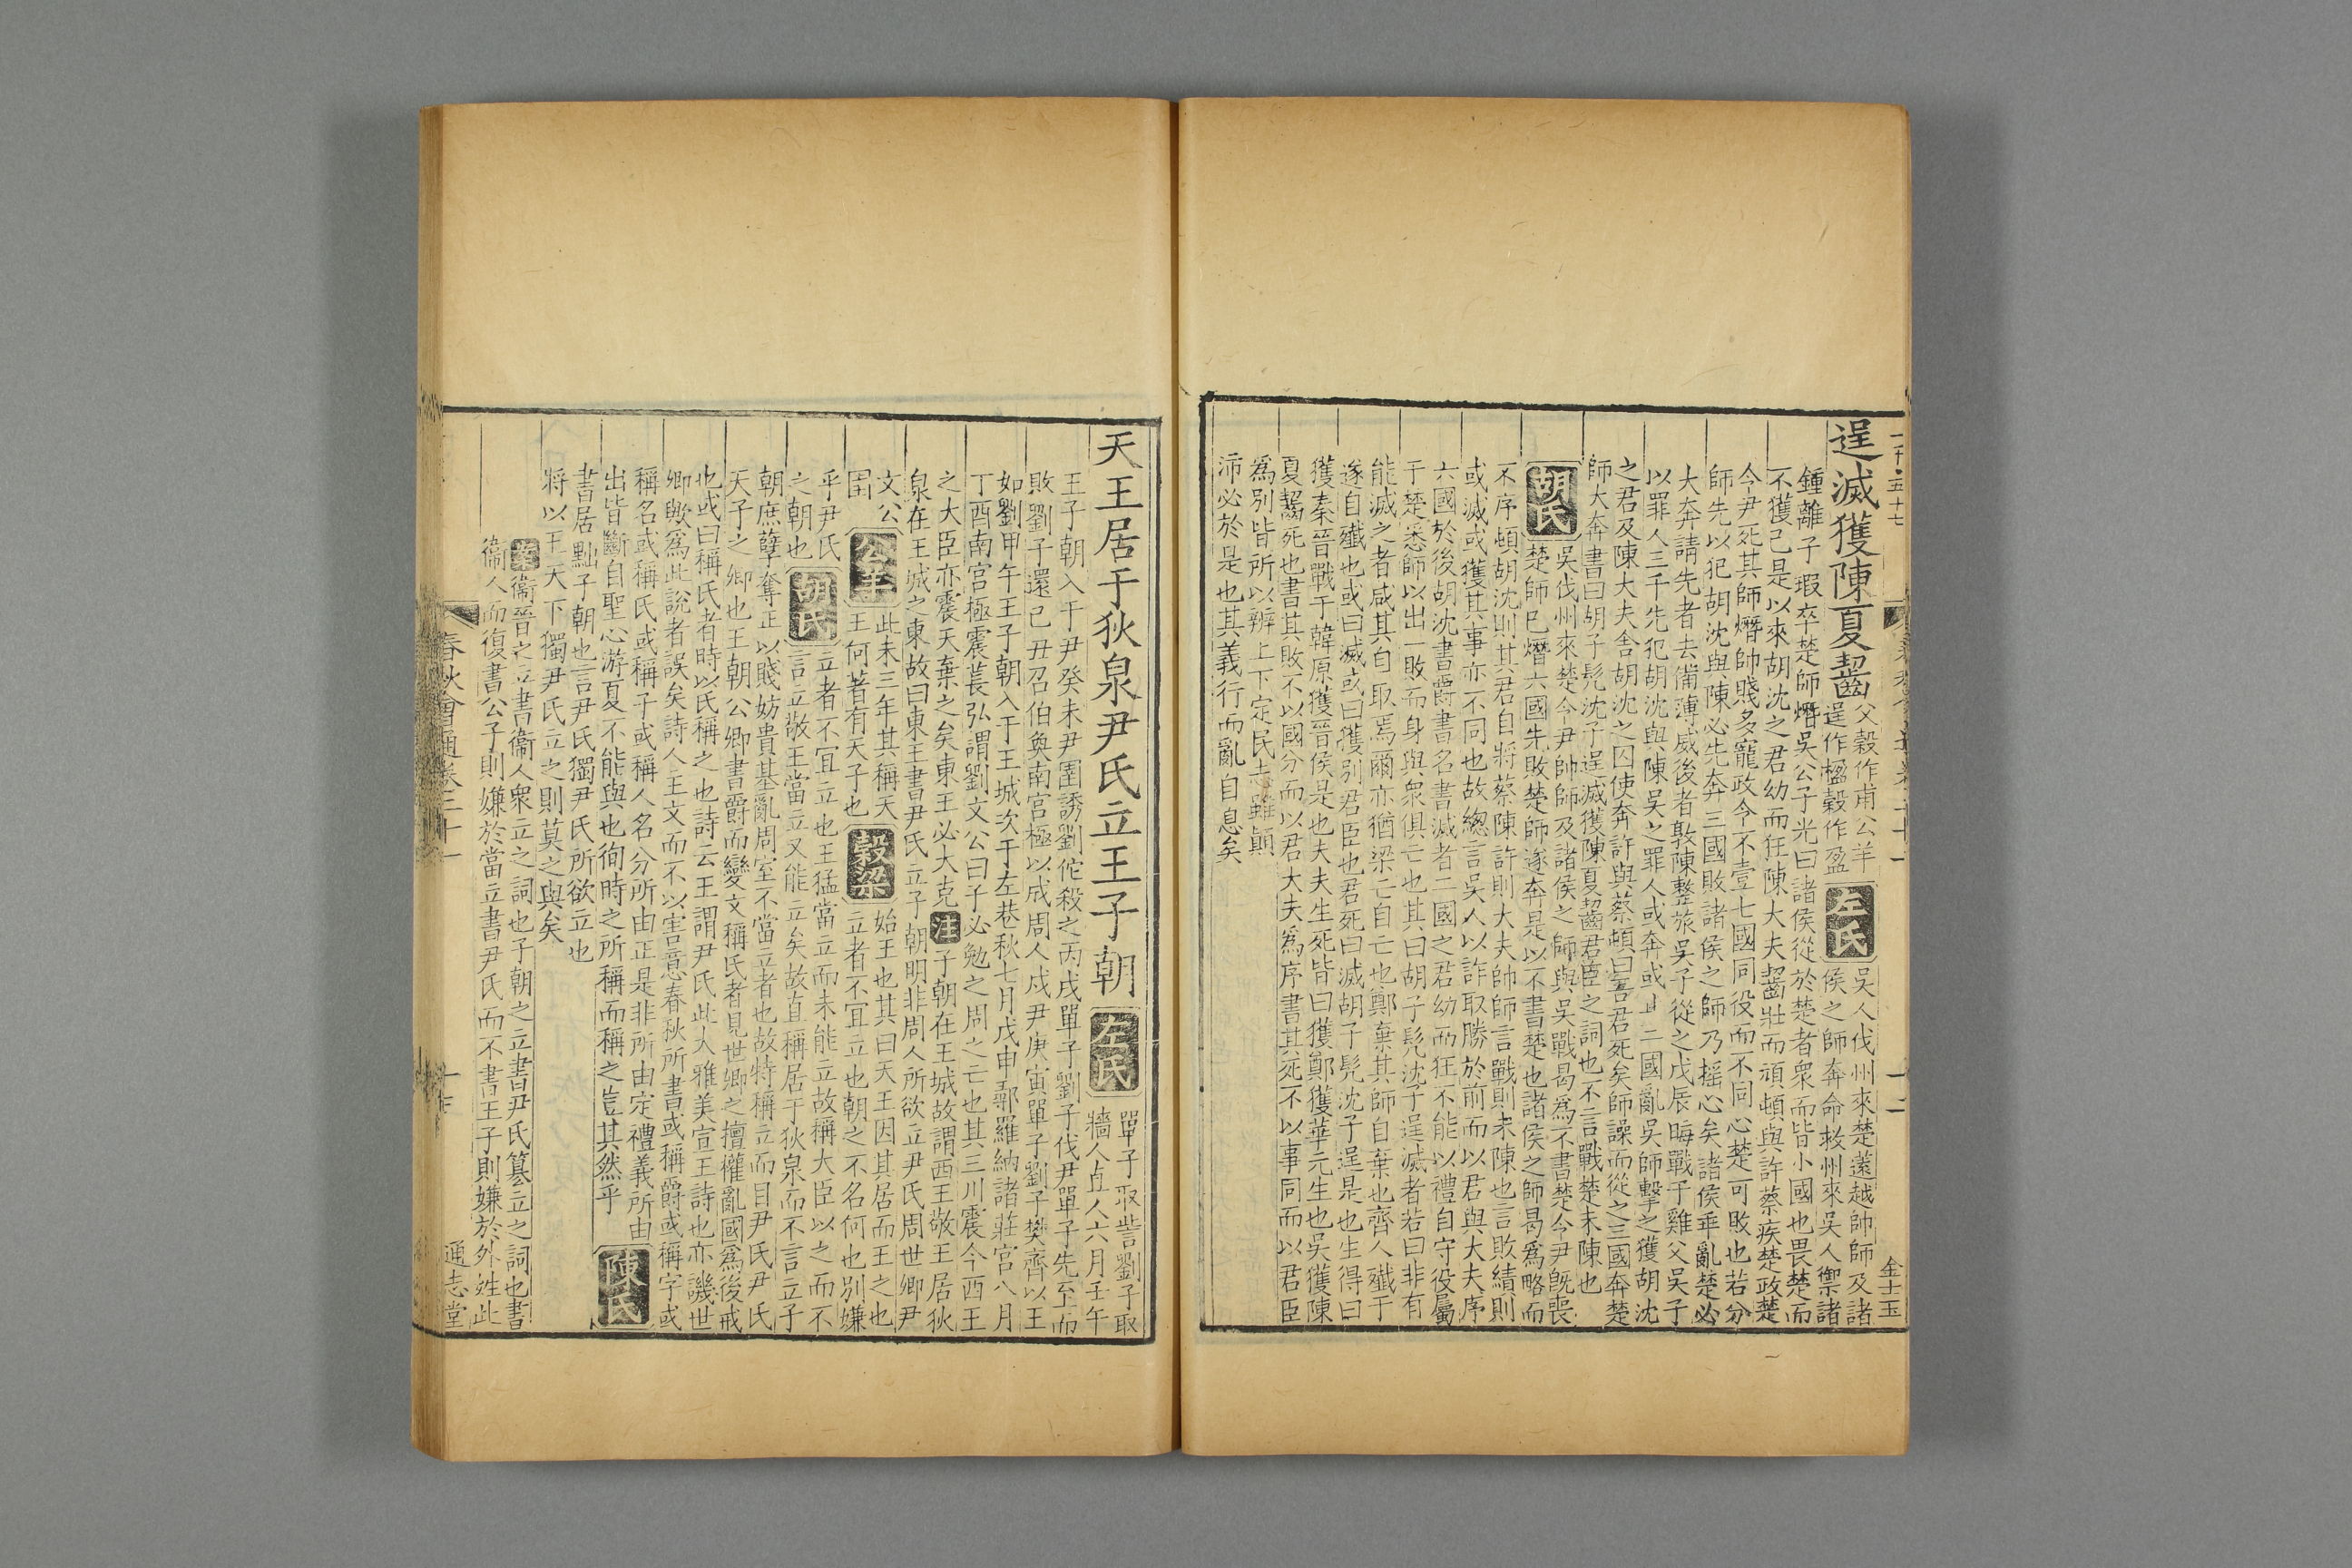 逞滅獲陳夏齧
父穀作甫公羊
逞作楹穀作盈
左氏
吳人伐州來楚薳越帥師及諸
侯之師奔命救州來吳人禦諸
鍾離子瑕卒楚師熸吳公子光曰諸侯從於楚者衆而皆小國也畏楚而
不獲已是以來胡沈之君幼而狂陳大夫齧壯而頑頓與許蔡疾楚政楚
令尹死其師熸帥賤多寵政令不壹七國同役而不同心楚可敗也若分
師先以犯胡沈與陳必先奔三國敗諸侯之師乃搖心矣諸侯乖亂楚必
大奔請先者去備薄威後者敦陳整旅吳子從之戊辰晦戰于雞父吳子
以罪人三千先犯胡沈與陳吳之罪人或奔或止二國亂吳師擊之獲胡沈
之君及陳大夫舍胡沈之囚使奔許與蔡頓曰吾君死矣師譟而從之三國奔楚
師大奔書曰胡子髡沈子逞滅獲陳夏齧君臣之詞也不言戰楚未陳也
胡氏
吳伐州來楚令尹帥師及諸侯之師與吳戰曷爲不書楚令尹旣喪
楚師已熸六國先敗楚師遂奔是以不書楚也諸侯之師曷爲略而
不序頓胡沈則其君自將蔡陳許則大夫帥師言戰則未陳也言敗績則
或滅或獲其事亦不同也故總言吳人以詐取勝於前而以君與大夫序
六國於後胡沈書爵書名書滅者二國之君幼而狂不能以禮自守役屬
于楚悉師以出一敗而身與衆俱亡也其曰胡子髡沈子逞滅者若曰非有
能滅之者咸其自取焉爾亦猶梁亡自亡也鄭棄其師自棄也齊人殲于
遂自殲也或曰滅或曰獲別君臣也君死曰滅胡子髡沈子逞是也生得曰
獲秦晉戰于韓原獲晉侯是也大夫生死皆曰獲鄭獲華元生也吳獲陳
夏齧死也書其敗不以國分而以君大夫爲序書其死不以事同而以君臣
爲別皆所以辨上下定民志雖顛
沛必於是也其義行而亂自息矣
天王居于狄泉尹氏立王子朝
左氏
單子取訾劉子取
牆人直人六月壬午
王子朝入于尹癸未尹圉誘劉佗殺之丙戌單子劉子伐尹單子先至而
敗劉子還己丑召伯奐南宮極以成周人戍尹庚寅單子劉子樊齊以王
如劉甲午王子朝入于王城次于左巷秋七月戊申鄩羅納諸莊宮八月
丁酉南宮極震萇弘謂劉文公曰子必勉之周之亡也其三川震今西王
之大臣亦震天棄之矣東王必大克
注
子朝在王城故謂西王敬王居狄
泉在王城之東故曰東王書尹氏立子朝明非周人所欲立尹氏周世卿尹
文公
圉
公羊
此未三年其稱天
王何著有天子也
穀梁
始王也其曰天王因其居而王之也
立者不宜立也朝之不名何也別嫌
乎尹氏
之朝也
胡氏
立者不宜立也王猛當立而未能立故稱大臣以之而不
言立敬王當立又能立矣故直稱居于狄泉而不言立子
朝庶孽奪正以賤妨貴基亂周室不當立者也故特稱立而目尹氏尹氏
天子之卿也王朝公卿書爵而變文稱氏者見世卿之擅權亂國爲後戒
也或曰稱氏者時以氏稱之也詩云王謂尹氏此大雅美宣王詩也亦譏世
卿歟爲此說者誤矣詩人主文而不以害意春秋所書或稱爵或稱字或
稱名或稱氏或稱子或稱人名分所由正是非所由定禮義所由
出皆斷自聖心游夏不能與也徇時之所稱而稱之豈其然乎
陳氏
書居黜子朝也言尹氏獨尹氏所欲立也
將以王天下獨尹氏立之則莫之與矣
案
衞晉之立書衞人衆立之詞也子朝之立書尹氏簒立之詞也書
衞人而復書公子則嫌於當立書尹氏而不書王子則嫌於外姓此
春秋會通卷二十一
通志堂